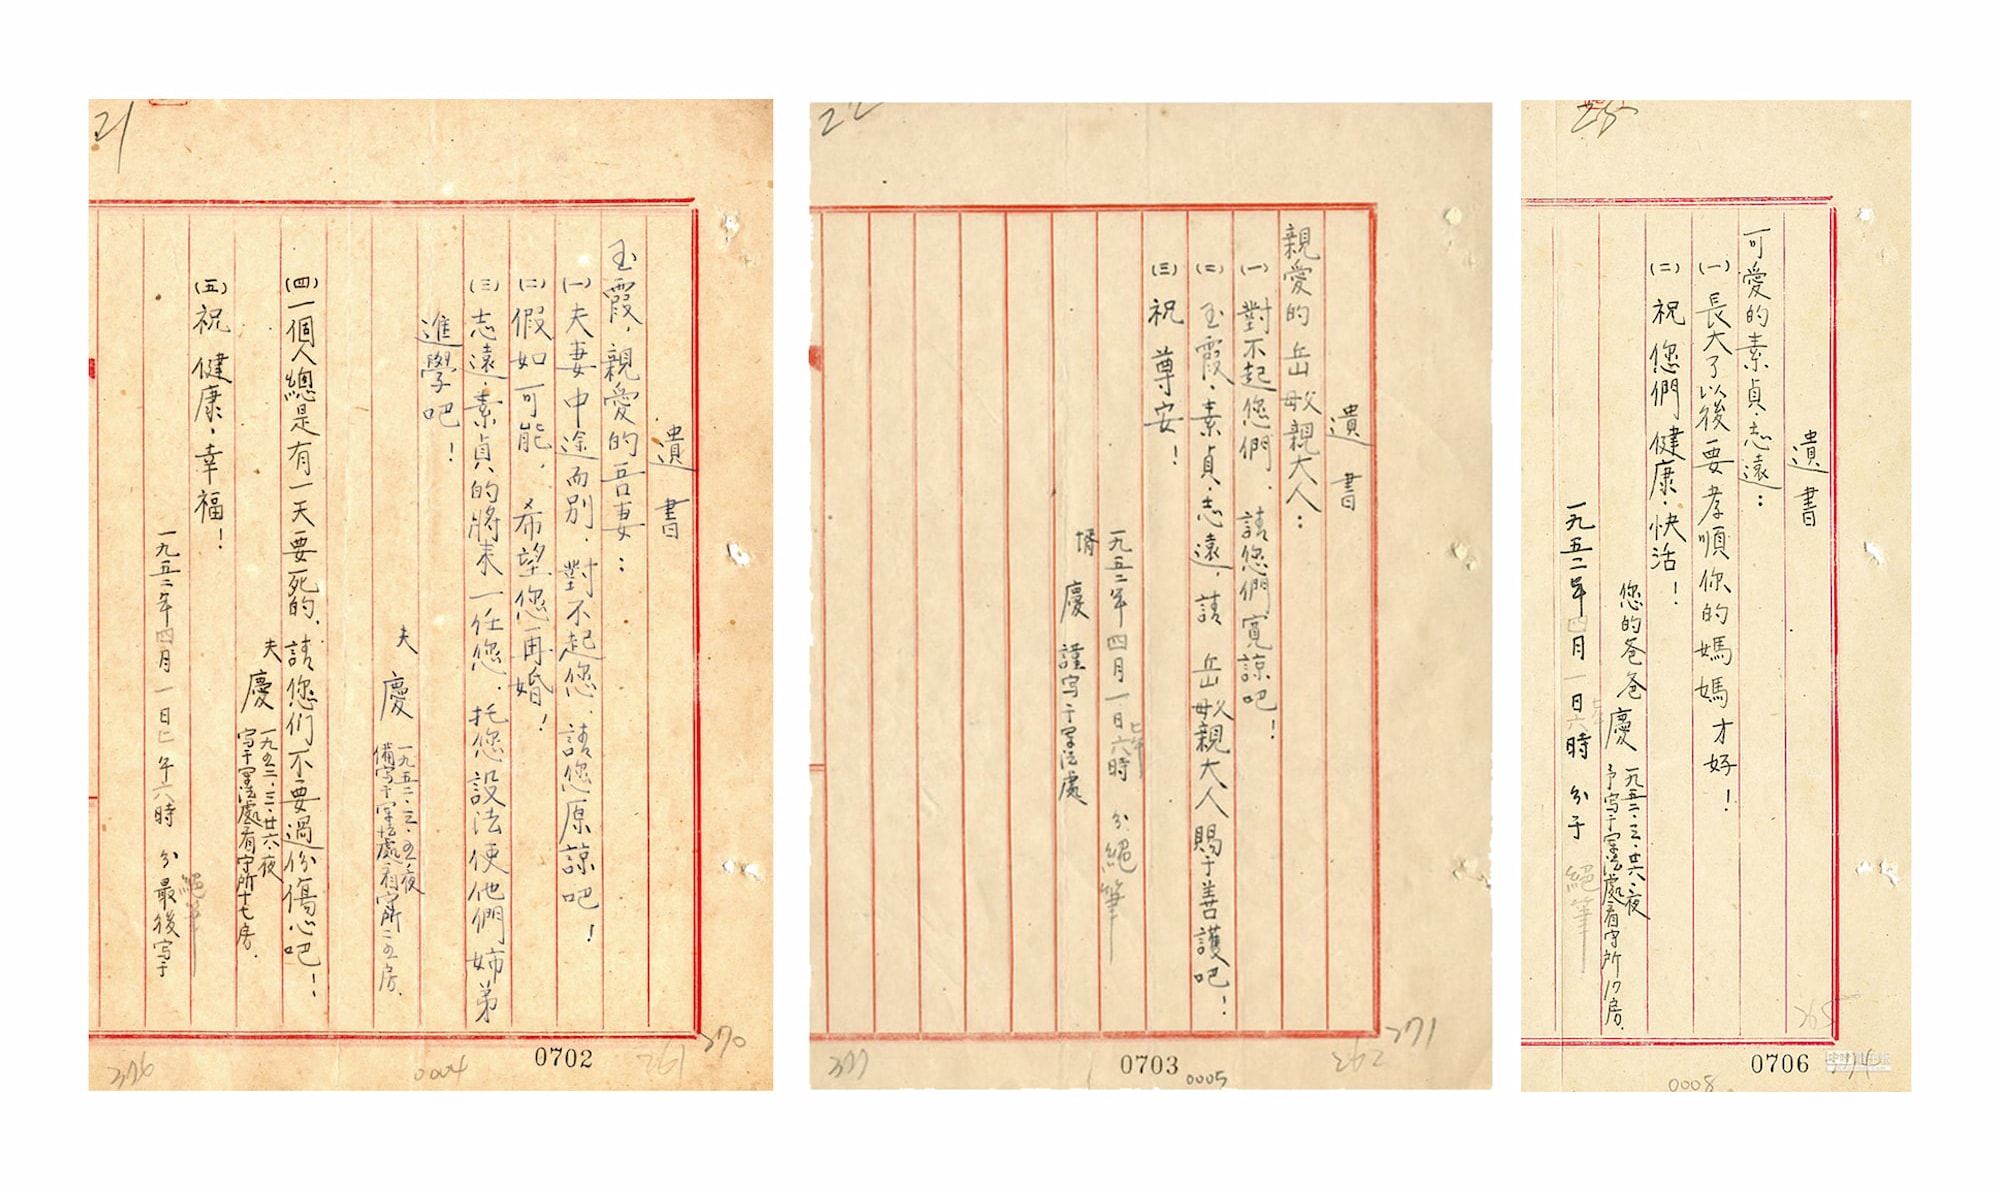 21
遺書
玉霞．親愛的吾妻：
㈠夫妻中途而別．對不起您．請您原諒吧！
㈡假如可能．希望您再婚！
㈢志遠．素貞的將來一任您．托您設法使他們姉弟
進學吧！
夫 慶 一九五二．三．五．夜
備写于军法處看守所二五房．
㈣一個人總是有一天要死的．請您们不要過份傷心吧！
夫 慶 一九五二．三．廿六．夜
写于军法處看守所十七房．
㈤祝 健康．幸福！
絕筆
一九五二年四月一日 午六時 分最後写于
370
0702
376
0004
261
22
遺書
親愛的岳母父親大人：
㈠對不起您們．請您們寬諒吧！
㈡玉霞．素貞．志遠．請 岳母父親大人賜于善護吧！
㈢祝 尊安！
一九五二年四月一日上午六時 分 絕筆
壻 慶 謹写于军法處
371
0703
377
0005
262
25
遺書
可愛的素貞．志遠：
㈠長大了以後要孝順你的媽媽才好！
㈡祝您們健康．快活！
您的爸爸慶 一九五二．三．廿六．夜
予写于军法處看守所17房．
一九五二年四月一日上午六時 分于 絕筆
265
0706
0008